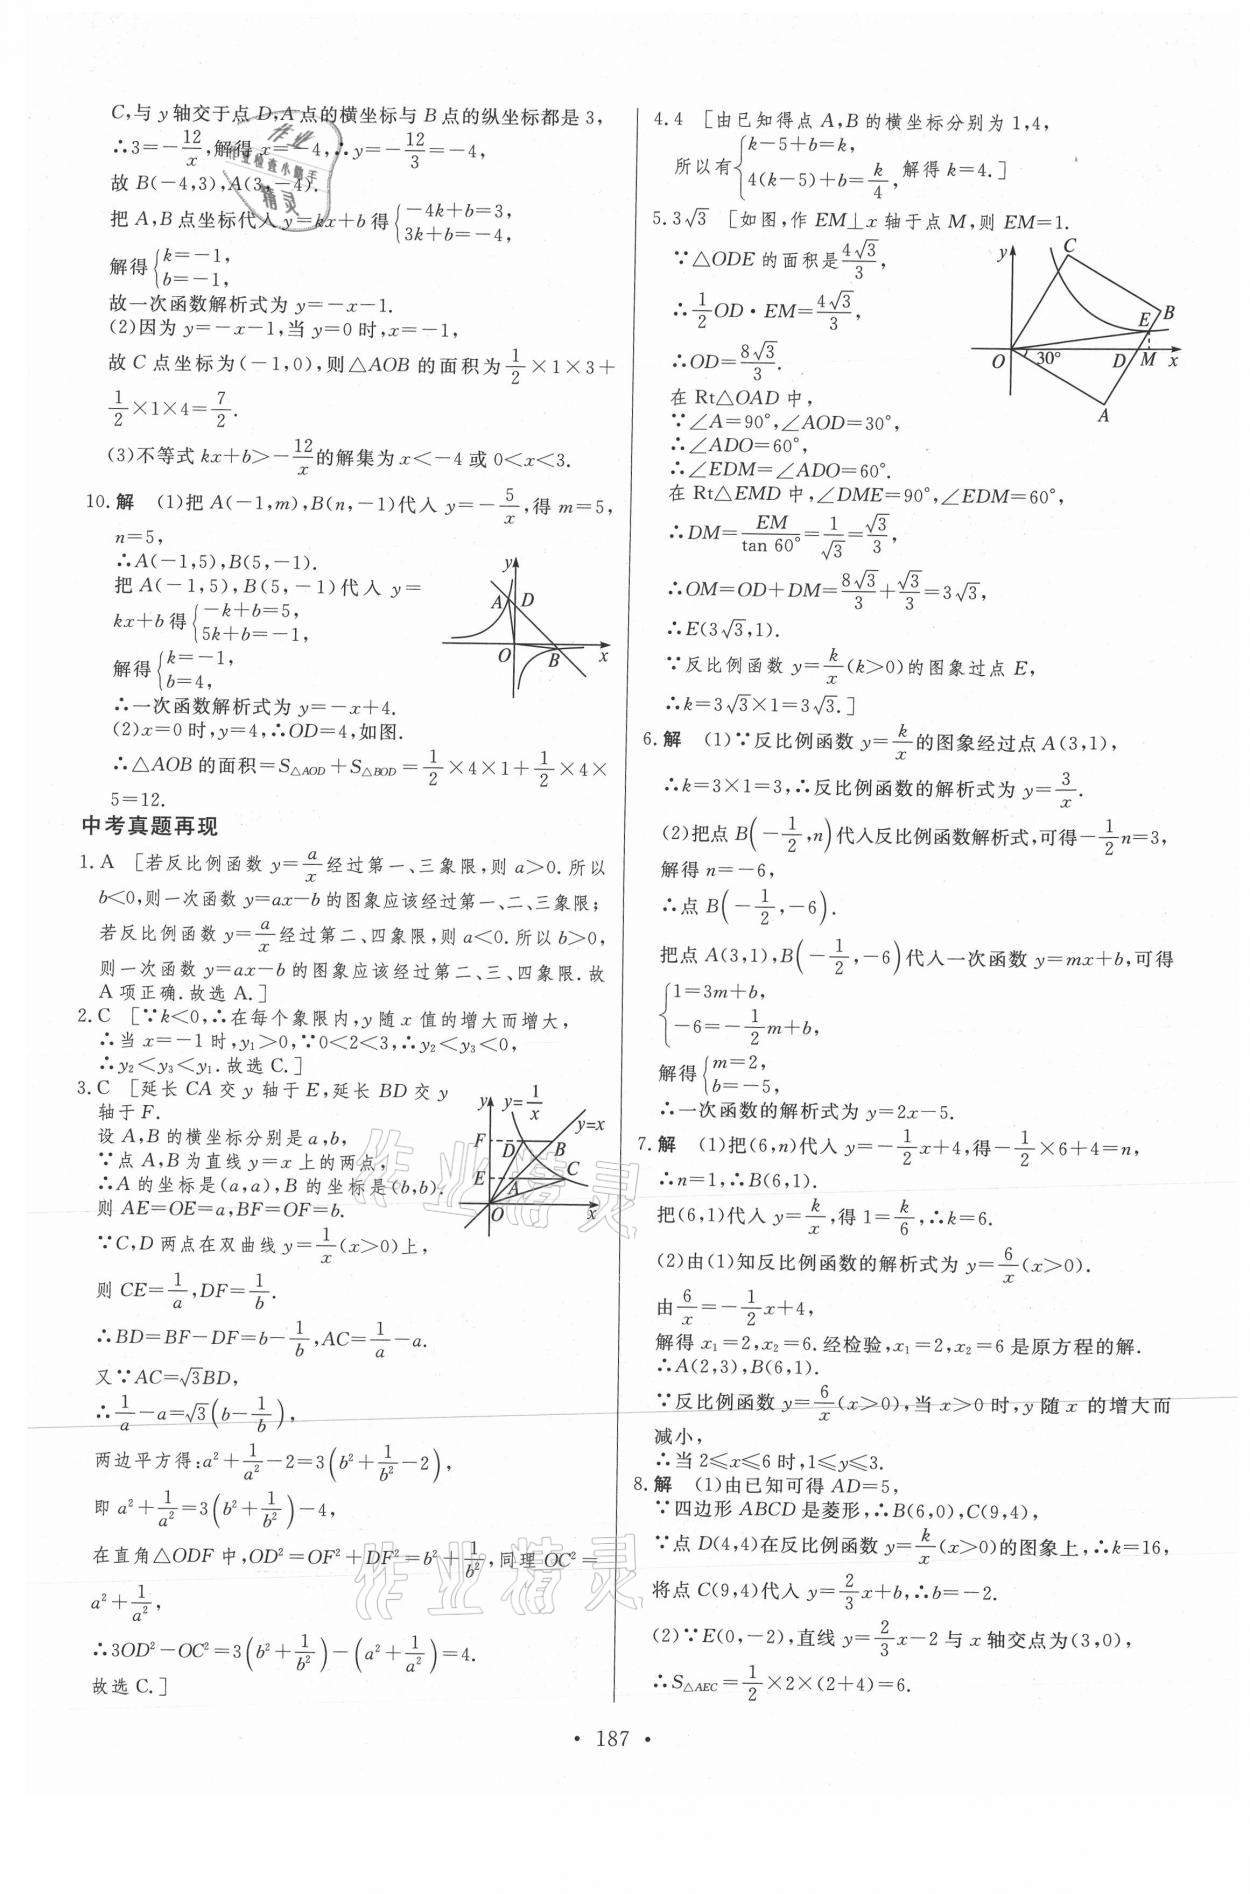 C,与 y 轴交于点 D,A 点的横坐标与 B 点的纵坐标都是 3,
∴3=-12/x,解得 x=-4,∴y=-12/3=-4,
故 B(-4,3),A(3,-4).
把 A,B 点坐标代入 y=kx+b 得{-4k+b=3, 3k+b=-4,
解得{k=-1, b=-1,
故一次函数解析式为 y=-x-1.
(2)因为 y=-x-1,当 y=0 时,x=-1,
故 C 点坐标为(-1,0),则△AOB 的面积为1/2×1×3+
1/2×1×4=7/2.
(3)不等式 kx+b>-12/x的解集为 x<-4 或 0<x<3.
10.解 (1)把 A(-1,m),B(n,-1)代入 y=-5/x,得 m=5,
n=5,
∴A(-1,5),B(5,-1).
把 A(-1,5),B(5,-1)代入 y=
kx+b 得{-k+b=5, 5k+b=-1,
解得{k=-1, b=4,
∴一次函数解析式为 y=-x+4.
(2)x=0 时,y=4,∴OD=4,如图.
∴△AOB 的面积=S△AOD+S△BOD=1/2×4×1+1/2×4×
5=12.
y
A D
O B x
中考真题再现
1.A [若反比例函数 y=a/x经过第一、三象限,则 a>0.所以
b<0,则一次函数 y=ax-b 的图象应该经过第一、二、三象限;
若反比例函数 y=a/x经过第二、四象限,则 a<0.所以 b>0,
则一次函数 y=ax-b 的图象应该经过第二、三、四象限.故
A 项正确.故选 A.]
2.C [∵k<0,∴在每个象限内,y 随 x 值的增大而增大,
∴当 x=-1 时,y₁>0,∵0<2<3,∴y₂<y₃<0,
∴y₂<y₃<y₁.故选 C.]
3.C [延长 CA 交 y 轴于 E,延长 BD 交 y
轴于 F.
设 A,B 的横坐标分别是 a,b,
∵点 A,B 为直线 y=x 上的两点,
∴A 的坐标是(a,a),B 的坐标是(b,b).
则 AE=OE=a,BF=OF=b.
∵C,D 两点在双曲线 y=1/x(x>0)上,
则 CE=1/a,DF=1/b.
∴BD=BF-DF=b-1/b,AC=1/a-a.
又∵AC=√3BD,
∴1/a-a=√3(b-1/b),
两边平方得:a²+1/a²-2=3(b²+1/b²-2),
即 a²+1/a²=3(b²+1/b²)-4,
在直角△ODF 中,OD²=OF²+DF²=b²+1/b²,同理 OC²=
a²+1/a²,
∴3OD²-OC²=3(b²+1/b²)-(a²+1/a²)=4.
故选 C.]
y y=1/x
y=x
F D B
E A C
O x
4.4 [由已知得点 A,B 的横坐标分别为 1,4,
所以有{k-5+b=k, 4(k-5)+b=k/4,解得 k=4.]
5.3√3 [如图,作 EM⊥x 轴于点 M,则 EM=1.
∵△ODE 的面积是4√3/3,
∴1/2OD·EM=4√3/3,
∴OD=8√3/3.
在 Rt△OAD 中,
∵∠A=90°,∠AOD=30°,
∴∠ADO=60°,
∴∠EDM=∠ADO=60°.
在 Rt△EMD 中,∠DME=90°,∠EDM=60°,
∴DM=EM/tan 60°=1/√3=√3/3,
∴OM=OD+DM=8√3/3+√3/3=3√3,
∴E(3√3,1).
∵反比例函数 y=k/x(k>0)的图象过点 E,
∴k=3√3×1=3√3.]
y C
E B
O 30° D M x
A
6.解 (1)∵反比例函数 y=k/x的图象经过点 A(3,1),
∴k=3×1=3,∴反比例函数的解析式为 y=3/x.
(2)把点 B(-1/2,n)代入反比例函数解析式,可得-1/2n=3,
解得 n=-6,
∴点 B(-1/2,-6).
把点 A(3,1),B(-1/2,-6)代入一次函数 y=mx+b,可得
{1=3m+b, -6=-1/2m+b,
解得{m=2, b=-5,
∴一次函数的解析式为 y=2x-5.
7.解 (1)把(6,n)代入 y=-1/2x+4,得-1/2×6+4=n,
∴n=1,∴B(6,1).
把(6,1)代入 y=k/x,得 1=k/6,∴k=6.
(2)由(1)知反比例函数的解析式为 y=6/x(x>0).
由6/x=-1/2x+4,
解得 x₁=2,x₂=6.经检验,x₁=2,x₂=6 是原方程的解.
∴A(2,3),B(6,1).
∵反比例函数 y=6/x(x>0),当 x>0 时,y 随 x 的增大而
减小,
∴当 2≤x≤6 时,1≤y≤3.
8.解 (1)由已知可得 AD=5,
∵四边形 ABCD 是菱形,∴B(6,0),C(9,4),
∵点 D(4,4)在反比例函数 y=k/x(x>0)的图象上,∴k=16,
将点 C(9,4)代入 y=2/3x+b,∴b=-2.
(2)∵E(0,-2),直线 y=2/3x-2 与 x 轴交点为(3,0),
∴S△AEC=1/2×2×(2+4)=6.
作业
作业检查小助手
精灵
作业精灵
作业精灵
· 187 ·